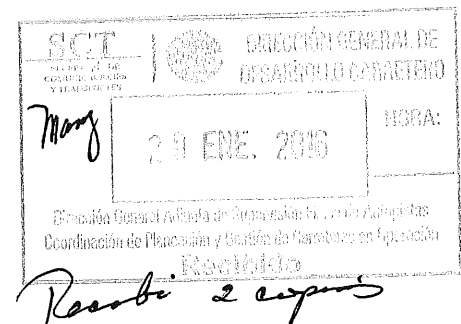 SCT
SECRETARÍA DE
COMUNICACIONES
Y TRANSPORTES
DIRECCIÓN GENERAL DE
DESARROLLO CARRETERO
HORA:
ENE. 2016
Dirección General Adjunta de Supervisión de Autopistas
Coordinación de Planeación y Gestión de Carreteras en Operación
Recibido
Recibi 2 copias